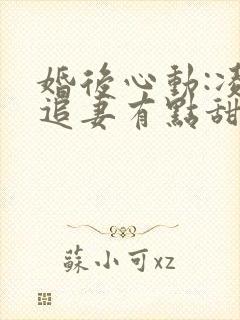 婚後心動:凌
追妻有點甜
蘇小可xz